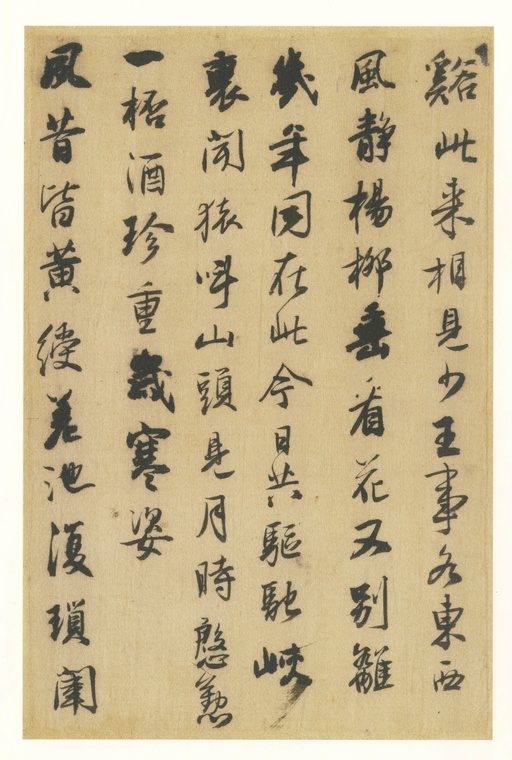 谿此來相見少王事各東西
風靜楊柳垂看花又別離
幾年同在此今日共驅馳峽
裏聞猿叫山頭見月時慇懃
一桮酒珍重歲寒姿
風昔皆黃綬差池復瑣闈